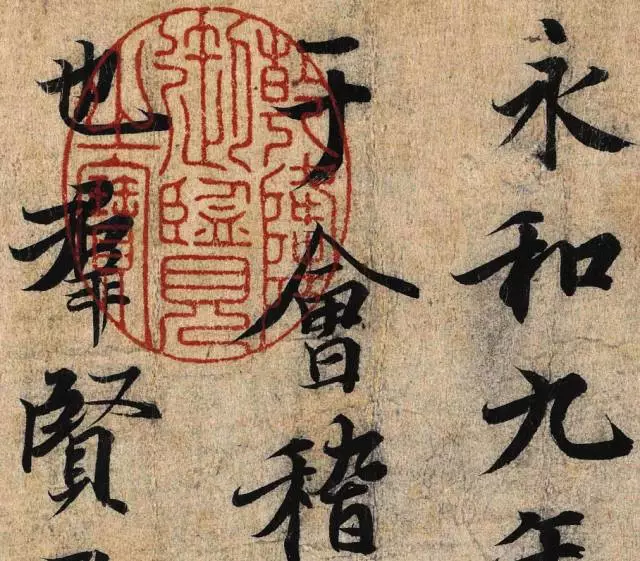 永和九年
于會稽
也羣賢
乾隆御覽之寶